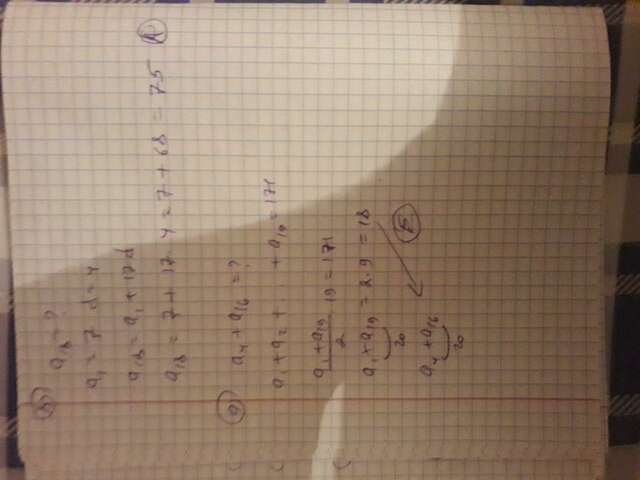 8) a₁₈ = ?
a₁ = 7 d = 4
a₁₈ = a₁ + 17d
a₁₈ = 7 + 17 · 4 = 7 + 68 = 75 A
9) a₄ + a₁₆ = ?
a₁ + a₂ + + a₁₉ = 171
(a₁ + a₁₉)/2 · 19 = 171
a₁ + a₁₉ = 2 · 9 = 18
20
a₄ + a₁₆ E
20